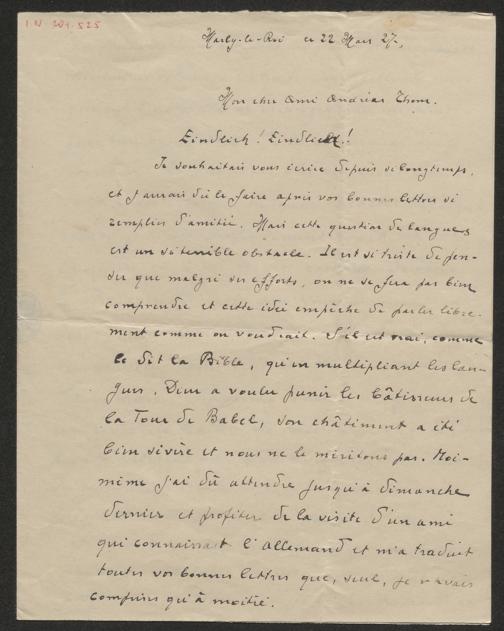 I.N. 204.525
Marly-le-Roi ce 22 Mars 27,
Mon cher Ami Andréas Thom.
Eindlich! Eindlich!
Je souhaitais vous écrire depuis si longtemps,
et j'aurais dû le faire après vos bonnes lettres si
remplies d'amitié. Mais cette question de langues
est un si terrible obstacle. Il est si triste de pen-
ser que malgré ses efforts, on ne se fera pas bien
comprendre et cette idée empêche de parler libre-
ment comme on voudrait. S'il est vrai, comme
le dit la Bible, qu'en multipliant les lan-
gues, Dieu a voulu punir les bâtisseurs de
la Tour de Babel, son châtiment a été
bien sévère et nous ne le méritons pas. Moi-
même j'ai dû attendre jusqu'à dimanche
dernier et profiter de la visite d'un ami
qui connaissait l'allemand et m'a traduit
toutes vos bonnes lettres que, seul, je n'avais
comprises qu'à moitié.